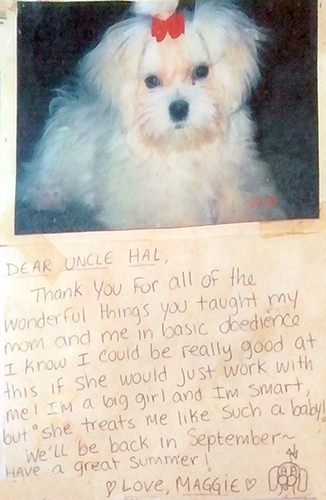 DEAR UNCLE HAL,
Thank you for all of the
wonderful things you taught my
mom and me in basic obedience
I know I could be really good at
this if she would just work with
me! I'm a big girl and I'm smart,
but she treats me like such a baby!
We'll be back in September~
HAVE a great summer!
♡ LOVE, MAGGIE ♡